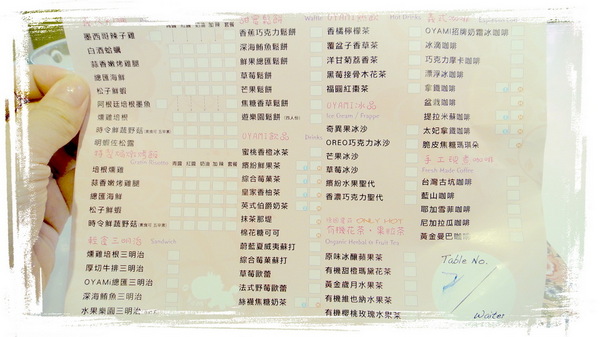 青醬 紅醬 奶油 加辣 套餐
墨西哥辣子雞
白酒蛤蠣
蒜香嫩烤雞
總匯海鮮
松子鮮蝦
阿根廷培根墨魚
燻雞培根
時令鮮蔬野菇
明蝦佐松露
Gratin Risotto 青醬 紅醬 奶油 加辣 套餐
培根燻雞
蒜香嫩烤雞腿
總匯海鮮
松子鮮蝦
時令鮮蔬野菇
輕食三明治 Sandwich
燻雞培根三明治
厚切牛排三明治
OYAMI總匯三明治
深海鮪魚三明治
水果樂園三明治
甜蜜鬆餅 Waffle
香蕉巧克力鬆餅
深海鮪魚鬆餅
鮮果總匯鬆餅
草莓鬆餅
芒果鬆餅
焦糖香草鬆餅
遊樂園鬆餅 (四人份)
OYAMI飲品 Drinks
蜜桃香橙冰茶
繽紛鮮果茶
綜合莓果茶
皇家香柚茶
英式伯爵奶茶
抹茶那堤
棉花糖可可
蔚藍夏威夷蘇打
綜合莓果蘇打
草莓歐蕾
法式野莓歐蕾
絲襪焦糖奶茶
OYAMI熱飲 Hot Drinks
香橘檸檬茶
覆盆子香草茶
洋甘菊荔香茶
黑莓接骨木花茶
福圓紅棗茶
OYAMI冰品
Ice Gream / Frappe
奇異果冰沙
OREO巧克力冰沙
芒果冰沙
草莓冰沙
繽紛水果聖代
香濃巧克力聖代
ONLY HOT
有機花茶、果粒茶
Organic Herbal n Fruit Tea
原味冰釀蘋果茶
有機甜橙瑪黛花茶
黃金歲月水果茶
有機維也納水果茶
有機櫻桃玫瑰水果茶
義式咖啡
OYAMI招牌奶霜冰咖啡
冰滴咖啡
巧克力摩卡咖啡
漂浮冰咖啡
拿鐵咖啡
盆栽咖啡
提拉米蘇咖啡
太妃拿鐵咖啡
脆皮焦糖瑪琪朵
手工現煮咖啡
Fresh Made Coffee
台灣古坑咖啡
藍山咖啡
耶加雪菲咖啡
尼加拉瓜咖啡
黃金曼巴咖啡
Table No.
7
Waiter